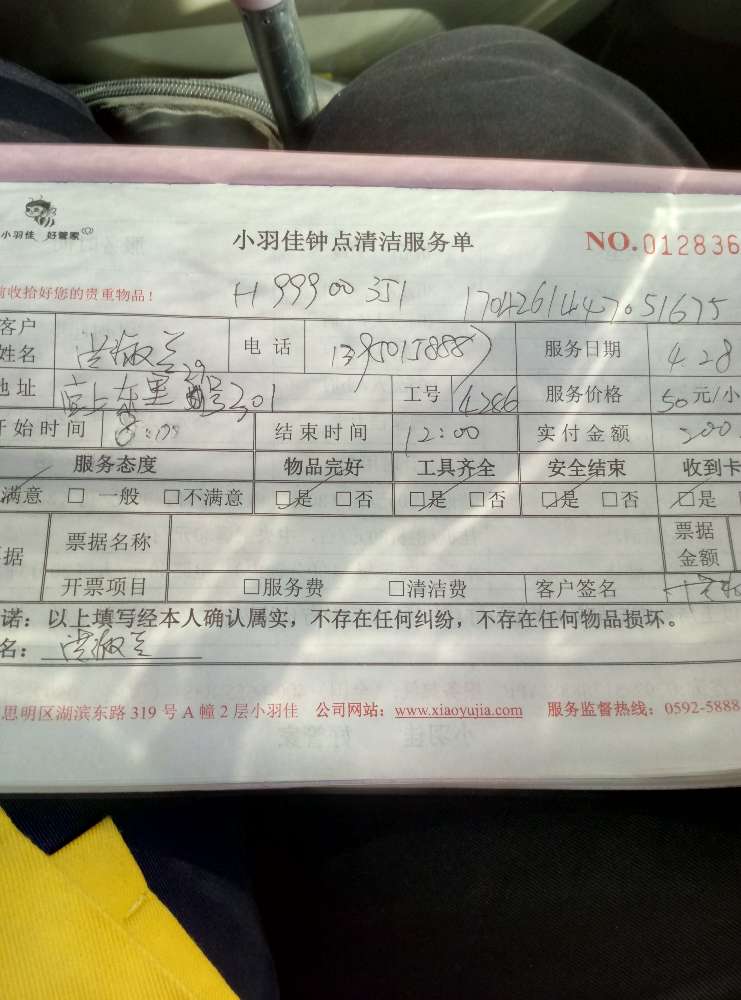 小羽佳 好管家
小羽佳钟点清洁服务单
NO.012836
前收拾好您的贵重物品!
H 99900351 1704261447051675
客户姓名 电话 服务日期 4.28
地址 东里 301 工号 4286 服务价格 50元/小
开始时间 8: 结束时间 12:00 实付金额 200
服务态度 物品完好 工具齐全 安全结束 收到卡
满意 □ 一般 □不满意 □是 □否 □是 □否 □是 □否 □是
据 票据名称 票据金额
开票项目 □服务费 □清洁费 客户签名
诺:以上填写经本人确认属实,不存在任何纠纷,不存在任何物品损坏。
名:
思明区湖滨东路 319 号 A 幢 2 层小羽佳 公司网站:www.xiaoyujia.com 服务监督热线:0592-5888